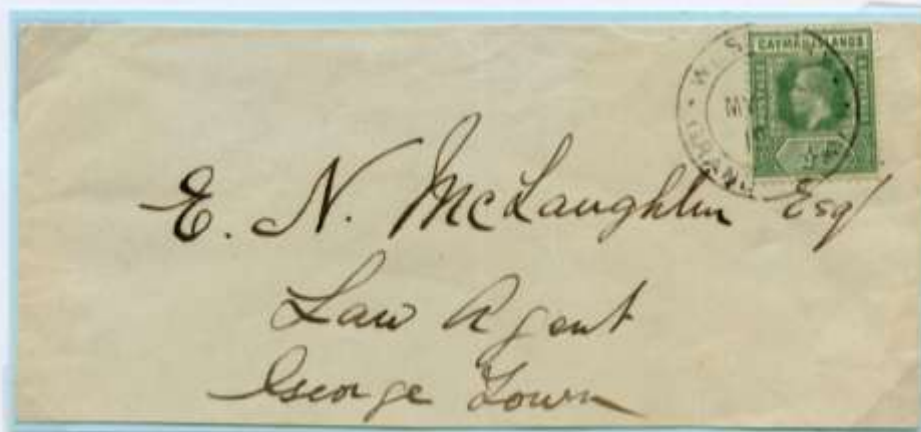 CAYMAN ISLANDS
MY
GRAND
E. N. McLaughlin Esq
Law Agent
George Town